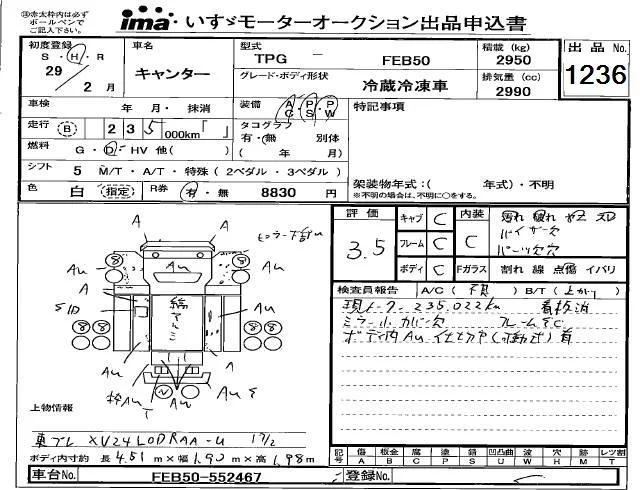 ※赤太枠内は必ず
ボールペンで
ご記入下さい。
ima いすゞモーターオークション出品申込書
初度登録 S・H・R 29/2月
車名 キャンター
型式 TPG － FEB50
積載 (kg) 2950
グレード・ボディ形状 冷蔵冷凍車
排気量 (cc) 2990
出品 No. 1236
車検 年 月・抹消
装備 AC・PS・PW
特記事項
走行 B 235,000km「 」
タコグラフ 有・無 別体 ( 年 月)
燃料 G・D・HV 他( )
シフト 5 M/T・A/T・特殊(2ペダル・3ペダル)
架装物年式:( 年式)・不明
※不明の場合は、不明に○をする。
色 白 (指定)
R券 有・無 8830 円
評価 3.5
キャブ C
フレーム C
ボディ C
内装 C
汚れ 破れ ヤケ スレ
バイザー欠
パーツ欠欠
Fガラス 割れ 線 点傷 イバリ
検査員報告 A/C( 不良 ) B/T( 上がり )
現トーク 235,022km 看板消
ミラー小カバー欠 フレームSC
ボディ内AU 仕切りP(可動式)有
A A
AU AU
AU
SID
AU AU
AU S
上物情報
東プレ XV24LODRAA-U 17/2
ボディ内寸約 長 4.51 m×幅 1.90 m×高 1.98 m
記号 傷 A 板金 B 腐 C 塗 P 錆 S 凹凸曲 U 波 W 穴 H 天 M レツ割 T
車台No. FEB50-552467
登録No.